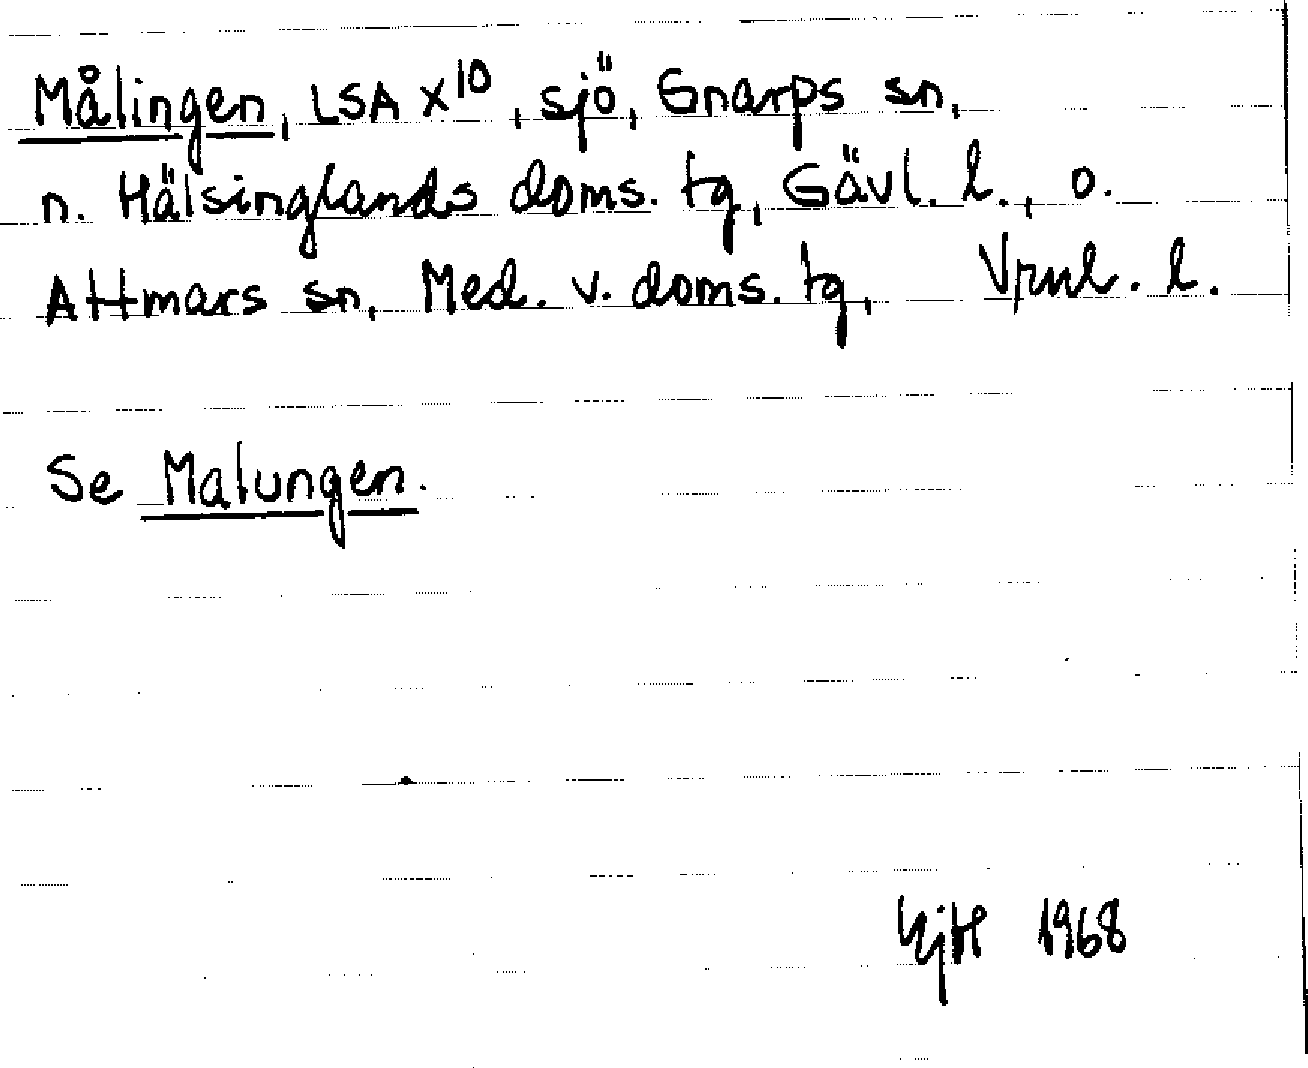 Målingen, LSA X10, sjö, Gnarps sn,
n. Hälsinglands doms. tg, Gävl. l., o.
Attmars sn, Med. v. doms. tg, Vrnl. l.
Se Malungen.
1968